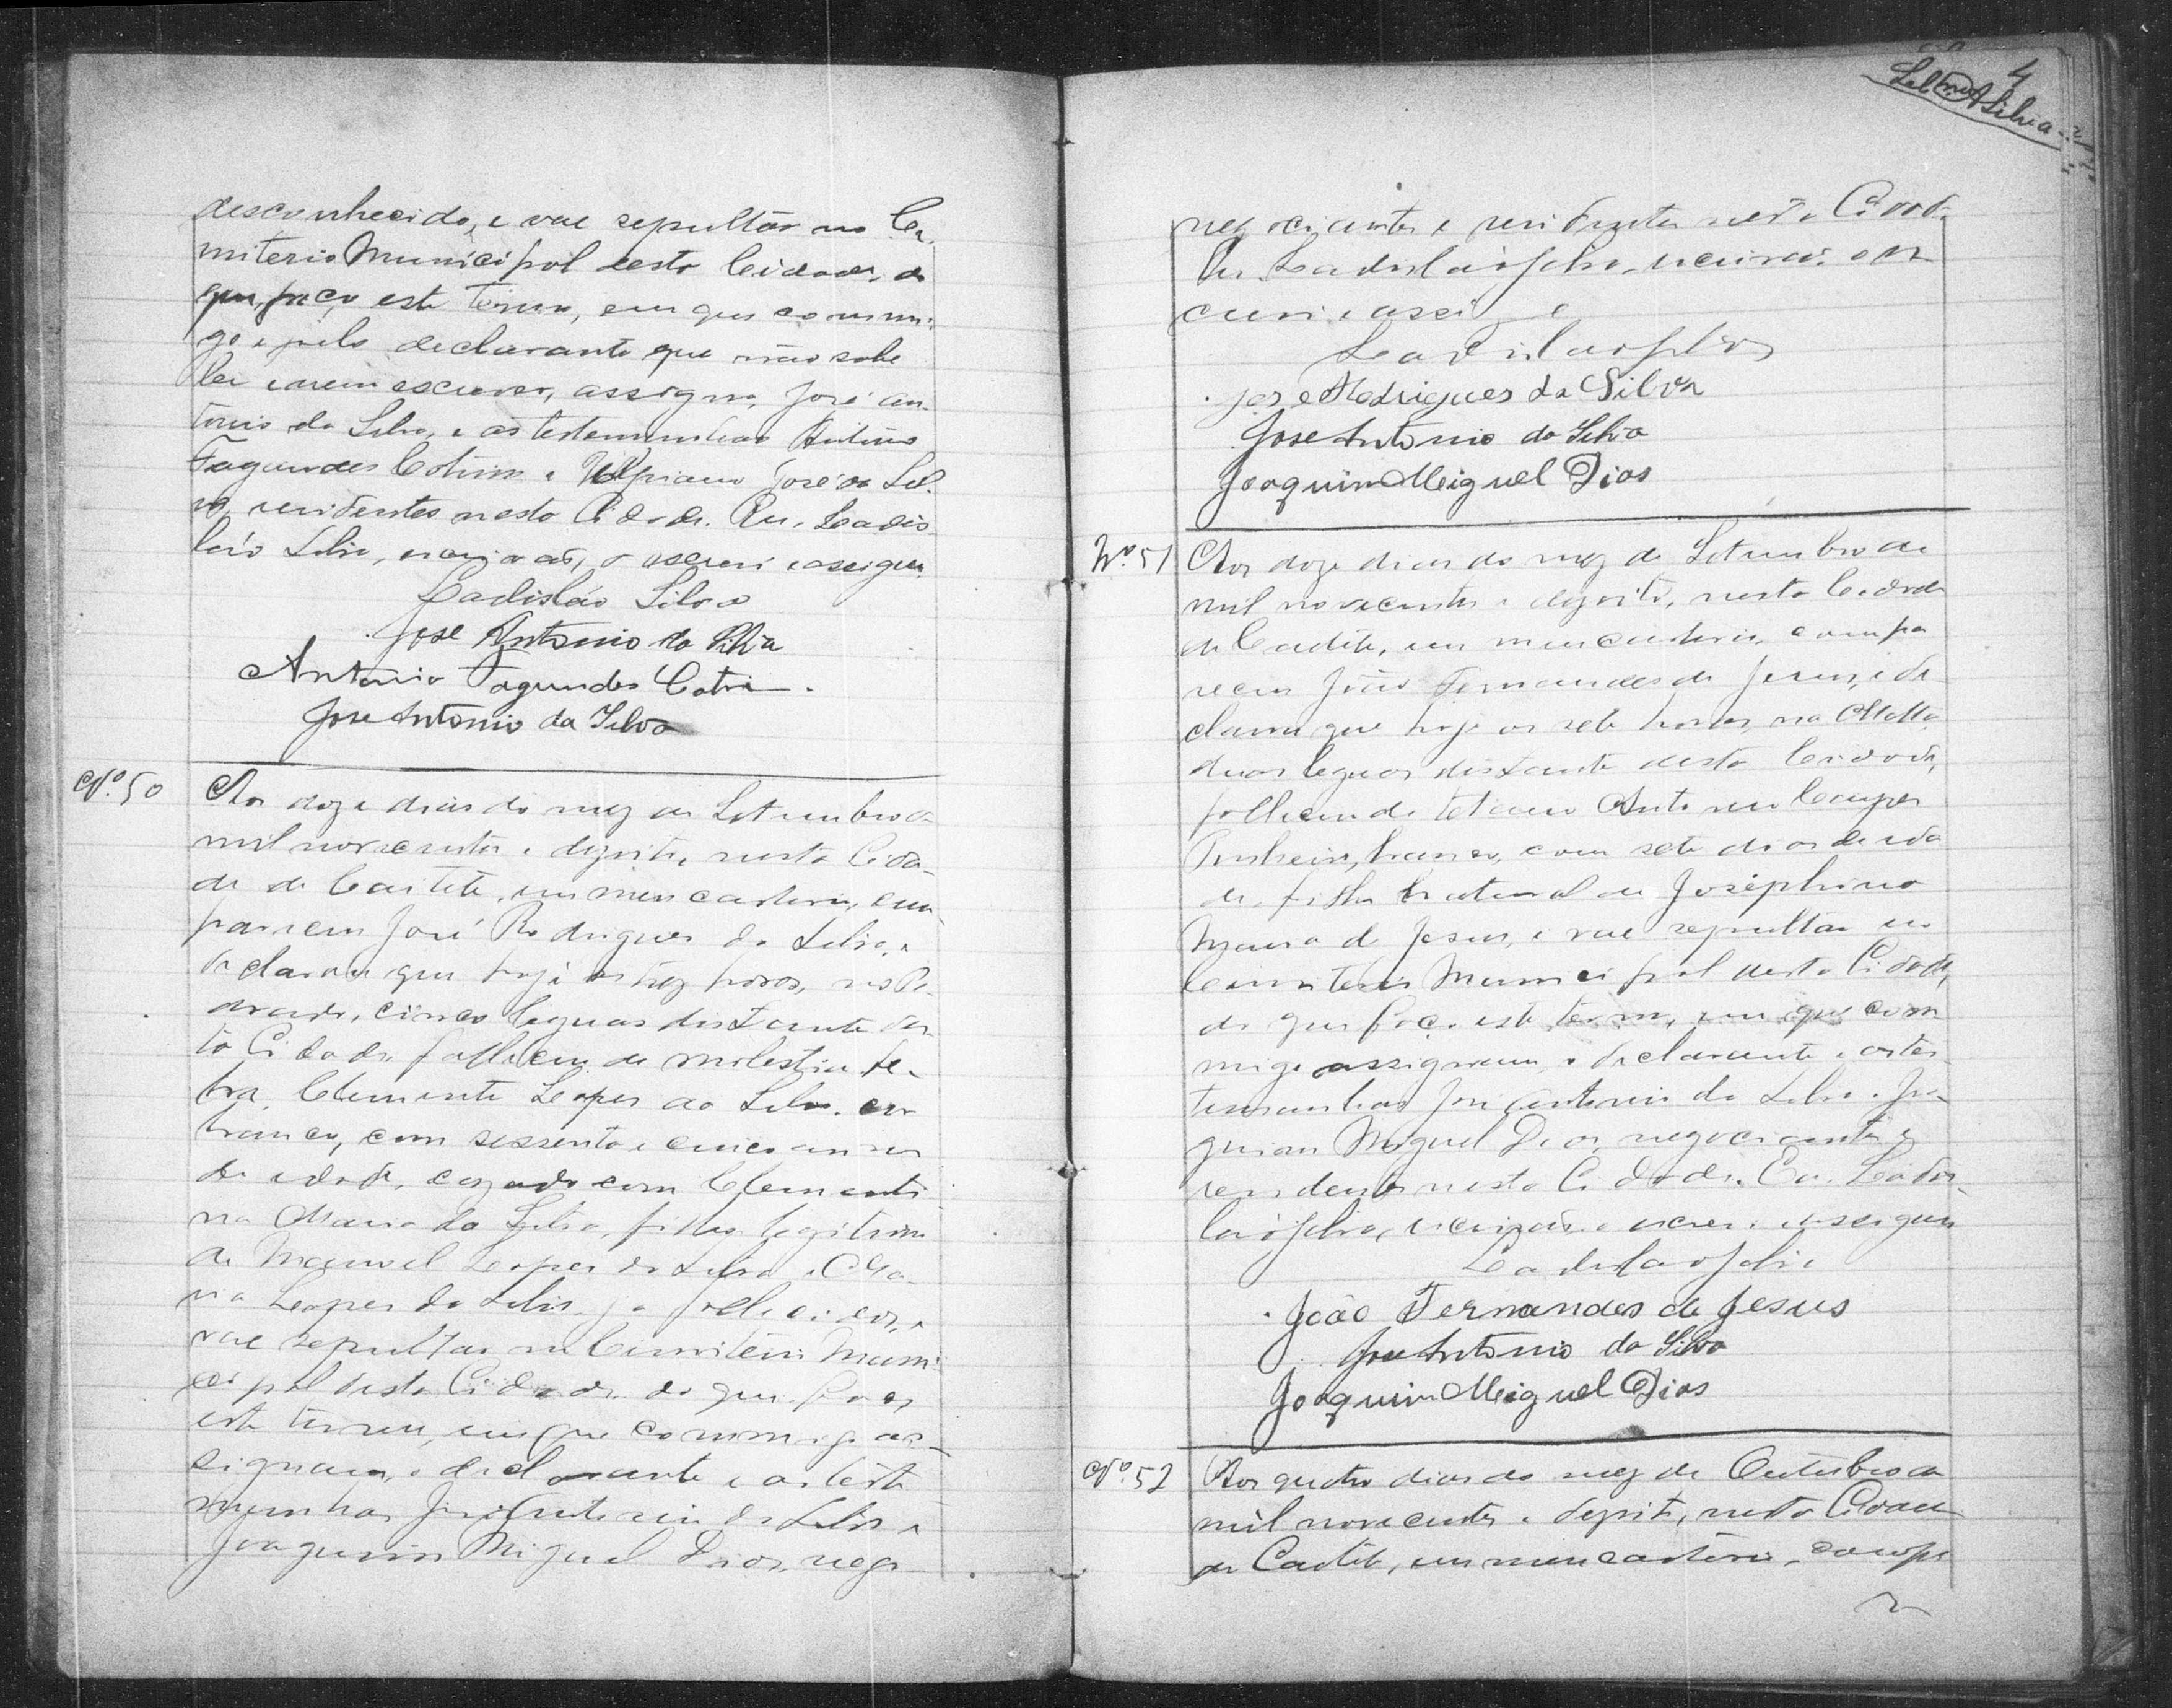 desconhecido, e vae sepultar no Ce-
miterio Municipal desta Cidade, do
que, faço este termo, em que commi-
go e pelo declarante que não sabe
ler e nem escrever, assigna, José An-
tonio da Silva, e as testemunhas Antonio
Fagundes Cotrim e José da Sil-
va, residentes nesta Cidade. Eu, Ladis-
láo Silva, escrivão, o escrevi e assignei.
Ladisláo Silva
José Antonio da Silva
Antonio Fagundes Cotrim
José Antonio da Silva
Nº. 50
Aos doze dias do mez de Setembro de
mil novecentos e dezoito, nesta Cida-
de de Caiteté, em meu cartorio, com-
pareceu José Rodrigues da Silva, e
declarou que hoje as trez horas,
cinco leguas distante des-
ta Cidade, falleceu de molestia
Clemente Lopes da Silva,
branco, com sessenta e cinco annos
de edade, cazado com Clementi-
na Maria da Silva, filho legitimo
de Manoel Lopes da Silva e
Lopes da Silva, ja fallecidos, e
vae sepultar no Cemiterio Muni-
cipal desta Cidade, do que faço
este termo, em que commigo as-
signam, o declarante e as teste-
munhas José Antonio da Silva e
Joaquim Miguel Dias, nego-
4
Silva
negociantes e residentes nesta Cidade.
Eu Ladisláo Silva, escrivão, o es-
crevi e assi
Ladisláo Silva
José Rodrigues da Silva
José Antonio da Silva
Joaquim Miguel Dias
Nº. 51
Aos doze dias do mez de Setembro de
mil novecentos e dezoito, nesta Cidade
de Caiteté, em meu cartorio, compa-
receu João Fernandes de Jesus, e de-
clarou que hoje as sete horas, na Matta,
duas leguas distante desta Cidade,
falleceu de tetano Antonio
Pinheiro, branco, com sete dias de eda-
de, filho natural de Josephina
Maria de Jesus, e vae sepultar no
Cemiterio Municipal desta Cidade,
do que faço este termo, em que com-
migo assignam, o declarante e as tes-
temunhas José Antonio da Silva e Joa-
quim Miguel Dias, negociantes e
residentes nesta Cidade. Eu, Ladis-
láo Silva, escrivão, o escrevi e assignei
Ladisláo Silva
João Fernandes de Jesus
José Antonio da Silva
Joaquim Miguel Dias
Nº. 52
Aos quatro dias do mez de Outubro de
mil novecentos e dezoito, nesta Cidade
de Caiteté, em meu cartorio, compa-